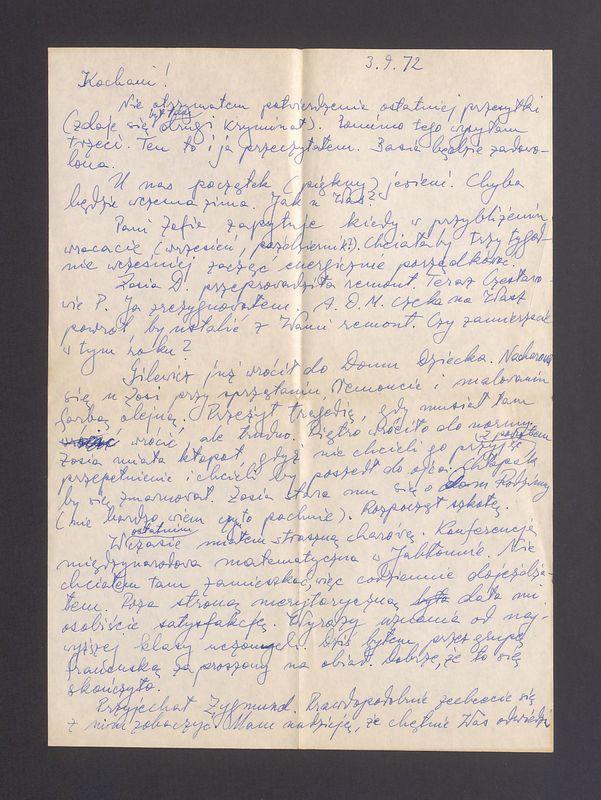 3.9.72
Kochani!
Nie otrzymałem potwierdzenia ostatniej przesyłki
(zdaje się był tam drugi kryminał). Pomimo tego wysyłam
trzeci. Ten to i ja przeczytałem. Basia będzie zadowo-
lona.
U nas początek (piękny) jesieni. Chyba
będzie wczesna zima. Jak u Was?
Pani Zofia zapytuje kiedy w przybliżeniu
wracacie (wrzesień, październik?). Chciałaby trzy tygod-
nie wcześniej zacząć energicznie porządkować.
Zosia D. przeprowadziła remont. Teraz Częstaro-
wie P. Ja zrezygnowałem. A.D.M. czeka na Wasz
powrót by ustalić z Wami remont. Czy zamierzacie
w tym roku?
Gilewicz już wrócił do Domu Dziecka. Naharował
się u Zosi przy sprzątaniu, remoncie i malowaniu
farbą olejną. Przeżył tragedię, gdy musiał tam
wrócić, ale trudno. Piętro wróciło do normy.
Zosia miała kłopot gdyż nie chcieli go przyjąć z powrotem
przepełnienie i chcieli by poszedł do ojca. Chłopak
by się zmarnował. Zosia stara mu się o dom Rodzinny
(nie bardzo wiem czym to pachnie). Rozpoczął szkołę.
Wczasie ostatnim miałem straszną charówę. Konferencję
międzynarodowa matematyczna w Jabłonnie. Nie
chciałem tam zamieszkać, więc codziennie dojeżdża-
łem. Poza stroną merytoryczną była dała mi
osobiście satysfakcję. Wyrazy uznania od naj-
wyższej klasy uczonych. Dziś byłem przez grupę
francuską zaproszony na obiad. Dobrze, że to się
skończyło.
Przyjechał Zygmund. Prawdopodobnie zechcecie się
z nim zobaczyć. Mam nadzieję, że chętnie Was odwiedzi